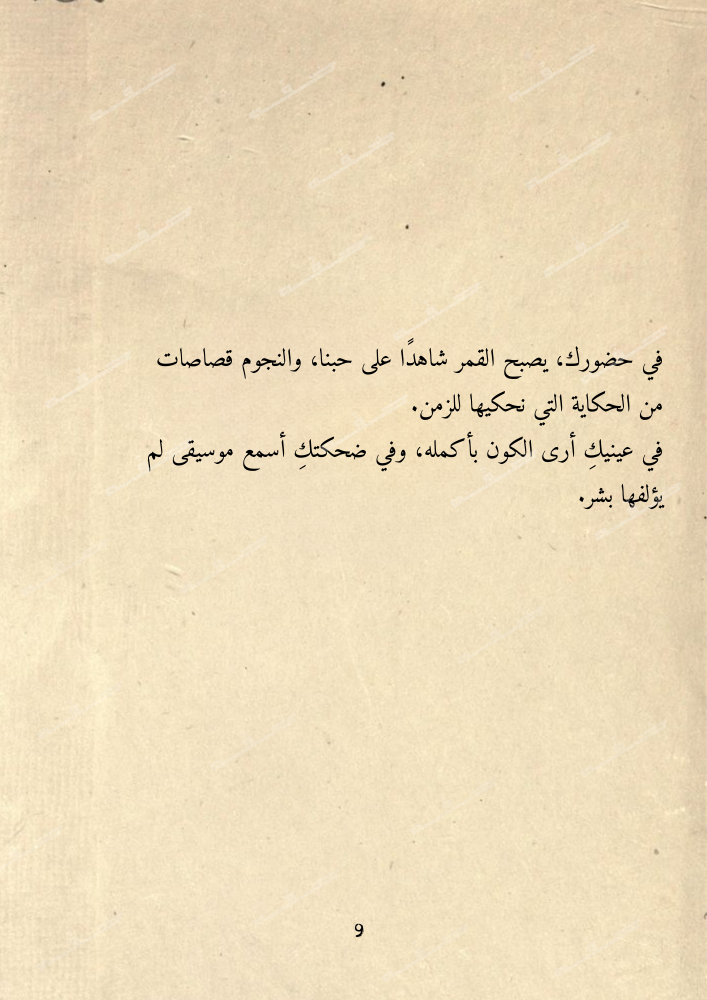 في حضورك، يصبح القمر شاهدًا على حبنا، والنجوم قصاصات
من الحكاية التي نحكيها للزمن.
في عينيكِ أرى الكون بأكمله، وفي ضحكتكِ أسمع موسيقى لم
يؤلفها بشر.
9